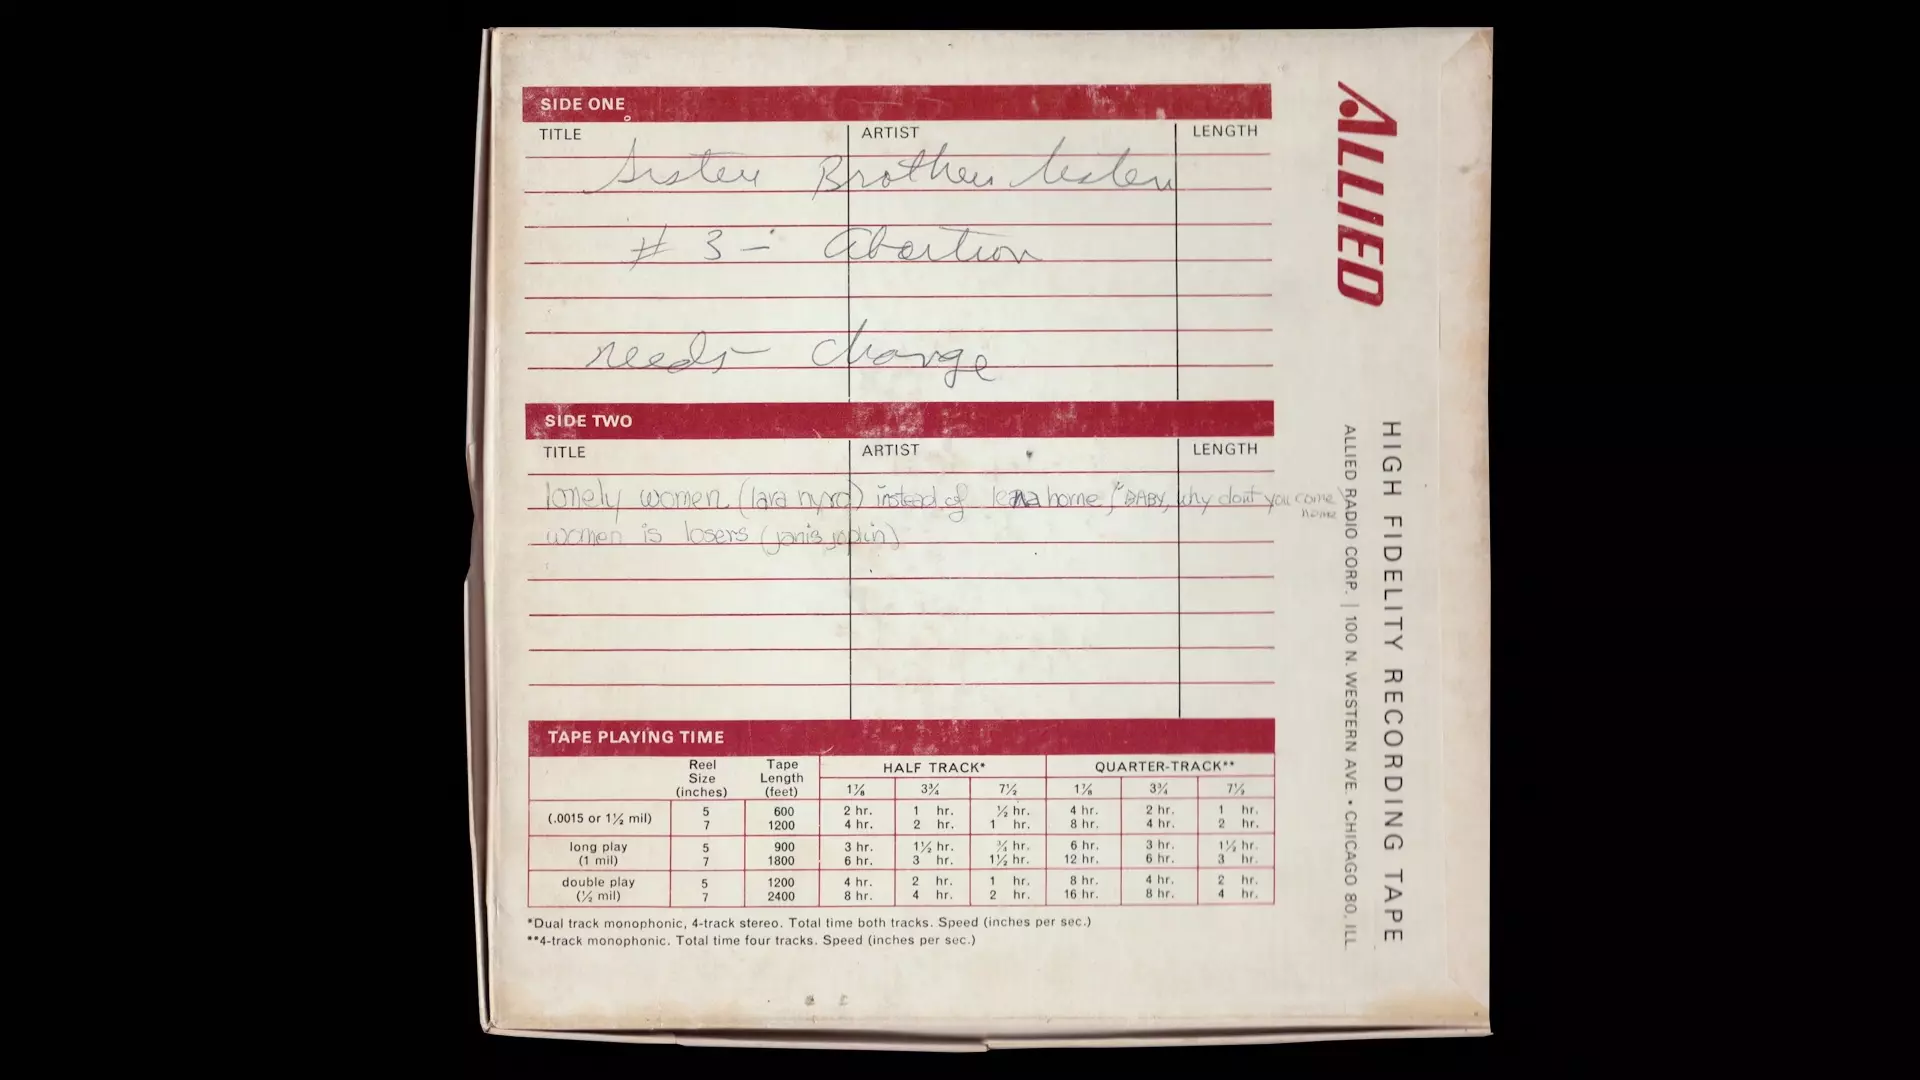 SIDE ONE
TITLE ARTIST LENGTH
Sister Brother Listen
# 3 - Abortion
needs change
SIDE TWO
TITLE ARTIST LENGTH
lonely women (lara nyro) instead of lena horne, "BABY, why dont you come home
women is losers (janis joplin)
TAPE PLAYING TIME
Reel Size (inches) Tape Length (feet) HALF TRACK* QUARTER-TRACK**
1⅞ 3¾ 7½ 1⅞ 3¾ 7½
(.0015 or 1½ mil) 5 600 2 hr. 1 hr. ½ hr. 4 hr. 2 hr. 1 hr.
7 1200 4 hr. 2 hr. 1 hr. 8 hr. 4 hr. 2 hr.
long play 5 900 3 hr. 1½ hr. ¾ hr. 6 hr. 3 hr. 1½ hr.
(1 mil) 7 1800 6 hr. 3 hr. 1½ hr. 12 hr. 6 hr. 3 hr.
double play 5 1200 4 hr. 2 hr. 1 hr. 8 hr. 4 hr. 2 hr.
(½ mil) 7 2400 8 hr. 4 hr. 2 hr. 16 hr. 8 hr. 4 hr.
*Dual track monophonic, 4-track stereo. Total time both tracks. Speed (inches per sec.)
**4-track monophonic. Total time four tracks. Speed (inches per sec.)
ALLIED
HIGH FIDELITY RECORDING TAPE
ALLIED RADIO CORP. | 100 N. WESTERN AVE. • CHICAGO 80, ILL.